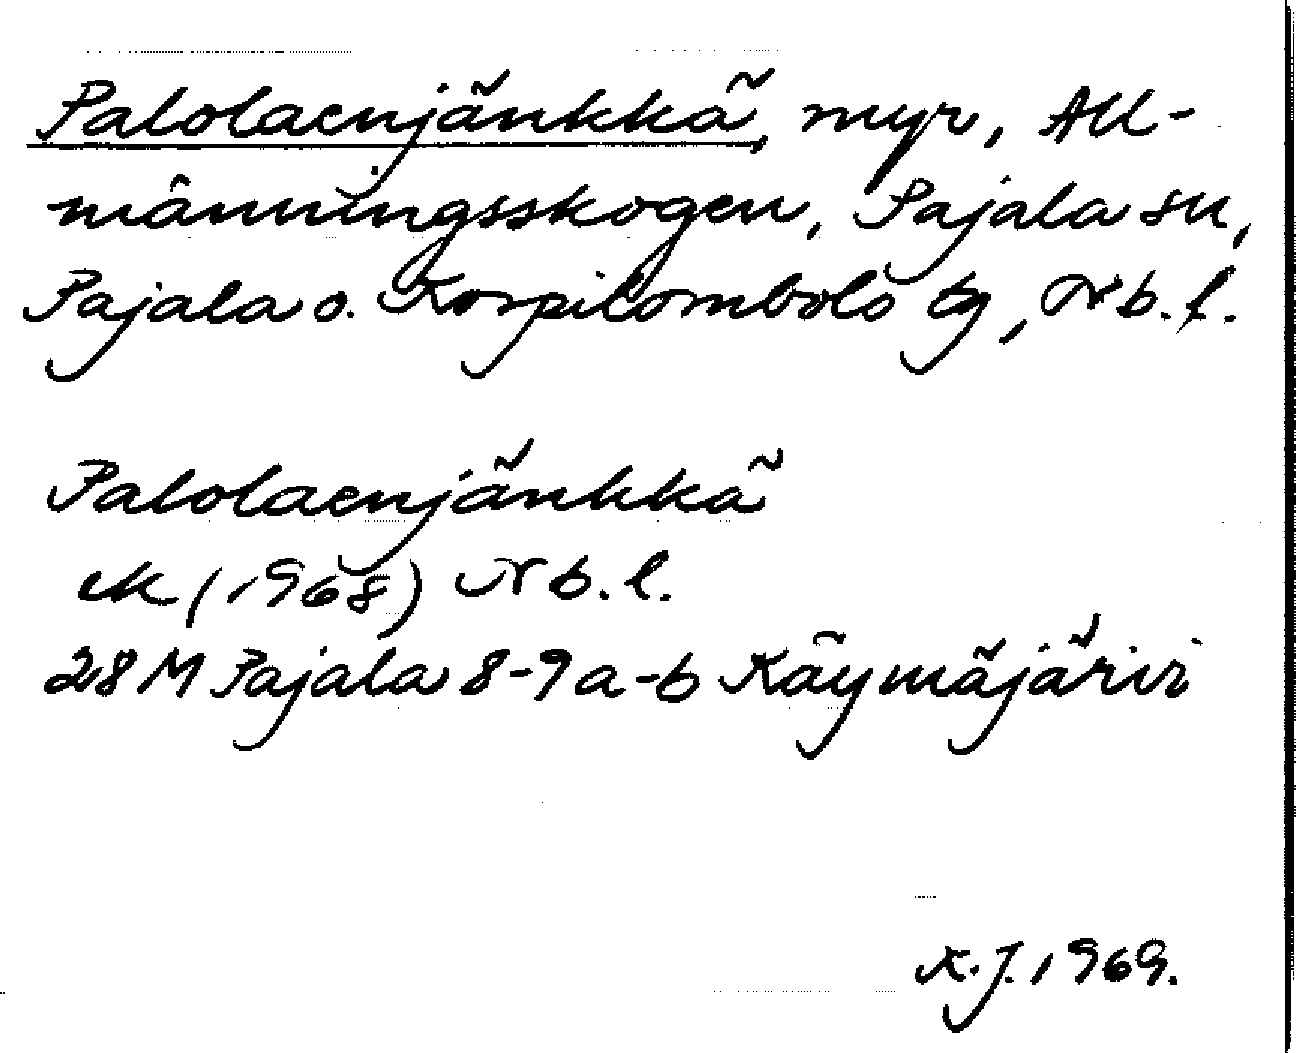 Palolaenjänkkä, myr, All-
männingsskogen, Pajala sn,
Pajala o. Korpilombolo tg, Nb. l.
Palolaenjänkkä
ek (1968) Nb. l.
28 M Pajala 8-9 a-b Käymäjärvi
K. J. 1969.